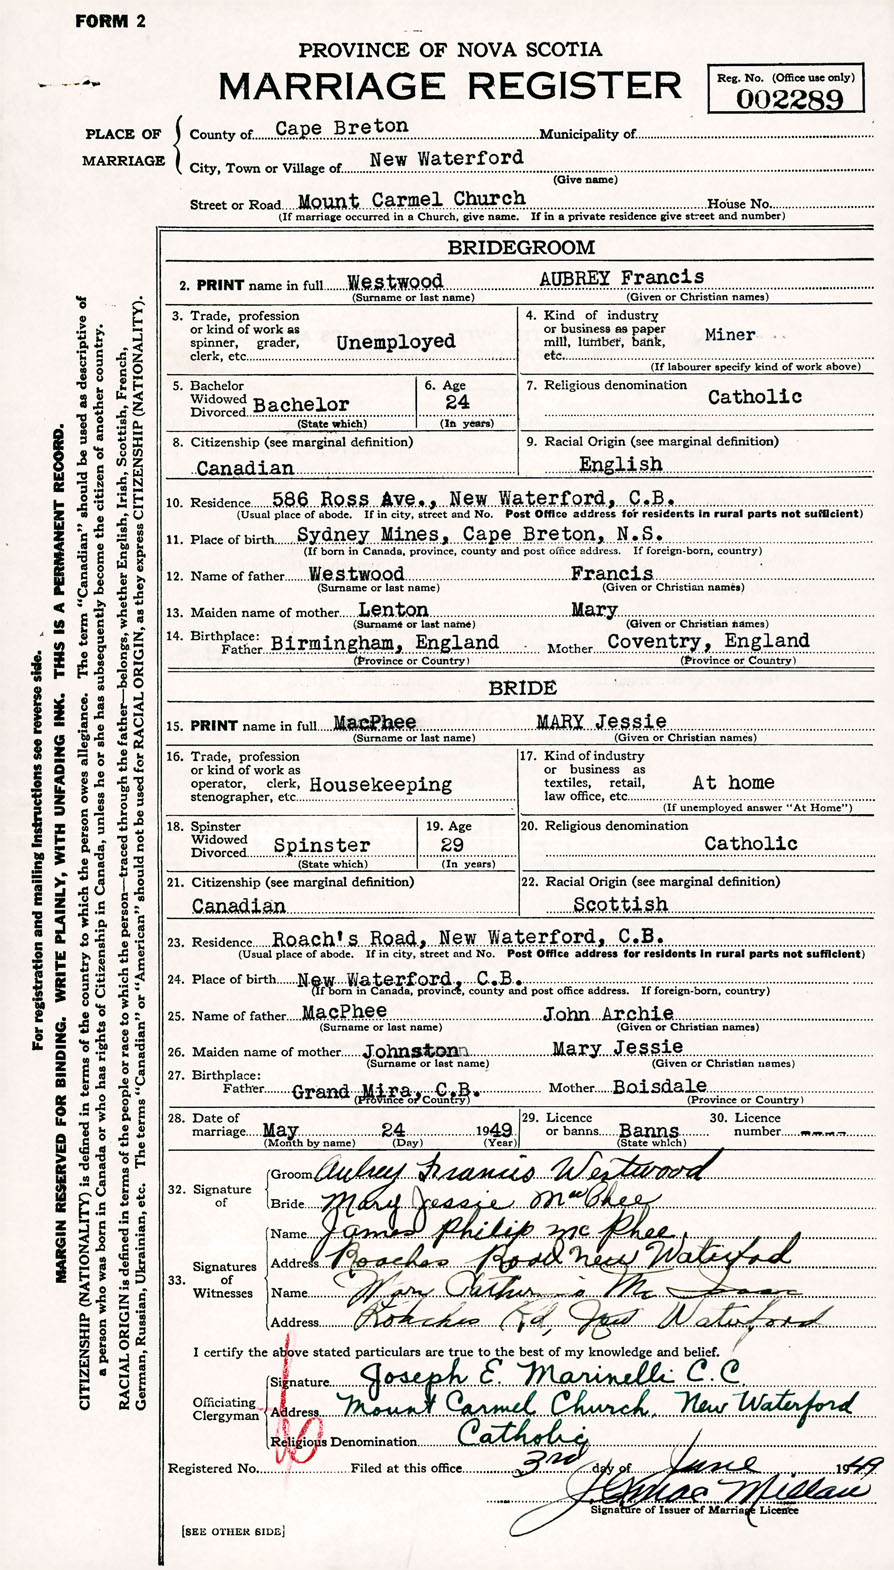 FORM 2
PROVINCE OF NOVA SCOTIA
MARRIAGE REGISTER
Reg. No. (Office use only)
002289
PLACE OF MARRIAGE
County of Cape Breton Municipality of
City, Town or Village of New Waterford
(Give name)
Street or Road Mount Carmel Church House No.
(If marriage occurred in a Church, give name. If in a private residence give street and number)
BRIDEGROOM
2. PRINT name in full Westwood AUBREY Francis
(Surname or last name) (Given or Christian names)
3. Trade, profession
or kind of work as
spinner, grader,
clerk, etc. Unemployed
4. Kind of industry
or business as paper
mill, lumber, bank,
etc. Miner
(If labourer specify kind of work above)
5. Bachelor
Widowed
Divorced Bachelor
(State which)
6. Age
24
(In years)
7. Religious denomination
Catholic
8. Citizenship (see marginal definition)
Canadian
9. Racial Origin (see marginal definition)
English
10. Residence 586 Ross Ave., New Waterford, C.B.
(Usual place of abode. If in city, street and No. Post Office address for residents in rural parts not sufficient)
11. Place of birth Sydney Mines, Cape Breton, N.S.
(If born in Canada, province, county and post office address. If foreign-born, country)
12. Name of father Westwood Francis
(Surname or last name) (Given or Christian names)
13. Maiden name of mother Lenton Mary
(Surname or last name) (Given or Christian names)
14. Birthplace:
Father Birmingham, England Mother Coventry, England
(Province or Country) (Province or Country)
BRIDE
15. PRINT name in full MacPhee MARY Jessie
(Surname or last name) (Given or Christian names)
16. Trade, profession
or kind of work as
operator, clerk,
stenographer, etc. Housekeeping
17. Kind of industry
or business as
textiles, retail,
law office, etc. At home
(If unemployed answer "At Home")
18. Spinster
Widowed
Divorced Spinster
(State which)
19. Age
29
(In years)
20. Religious denomination
Catholic
21. Citizenship (see marginal definition)
Canadian
22. Racial Origin (see marginal definition)
Scottish
23. Residence Roach's Road, New Waterford, C.B.
(Usual place of abode. If in city, street and No. Post Office address for residents in rural parts not sufficient)
24. Place of birth New Waterford, C.B.
(If born in Canada, province, county and post office address. If foreign-born, country)
25. Name of father MacPhee John Archie
(Surname or last name) (Given or Christian names)
26. Maiden name of mother Johnston Mary Jessie
(Surname or last name) (Given or Christian names)
27. Birthplace:
Father Grand Mira, C.B. Mother Boisdale
(Province or Country) (Province or Country)
28. Date of
marriage May 24 1949
(Month by name) (Day) (Year)
29. Licence
or banns Banns
(State which)
30. Licence
number ----
32. Signature of
Groom Aubrey Francis Westwood
Bride Mary Jessie MacPhee
33. Signatures of Witnesses
Name James Philip Mc Phee
Address Roaches Road New Waterford
Name Mary Mc
Address Roaches Rd, New Waterford
I certify the above stated particulars are true to the best of my knowledge and belief.
Officiating Clergyman
Signature Joseph E. Marinelli C.C.
Address Mount Carmel Church, New Waterford
Religious Denomination Catholic
Registered No. Filed at this office 3rd day of June 1949
Signature of Issuer of Marriage Licence
[SEE OTHER SIDE]
For registration and mailing instructions see reverse side.
MARGIN RESERVED FOR BINDING. WRITE PLAINLY, WITH UNFADING INK. THIS IS A PERMANENT RECORD.
CITIZENSHIP (NATIONALITY) is defined in terms of the country to which the person owes allegiance. The term "Canadian" should be used as descriptive of
a person who was born in Canada or who has rights of Citizenship in Canada, unless he or she has subsequently become the citizen of another country.
RACIAL ORIGIN is defined in terms of the people or race to which the person—traced through the father—belongs, whether English, Irish, Scottish, French,
German, Russian, Ukrainian, etc. The terms "Canadian" or "American" should not be used for RACIAL ORIGIN, as they express CITIZENSHIP (NATIONALITY).